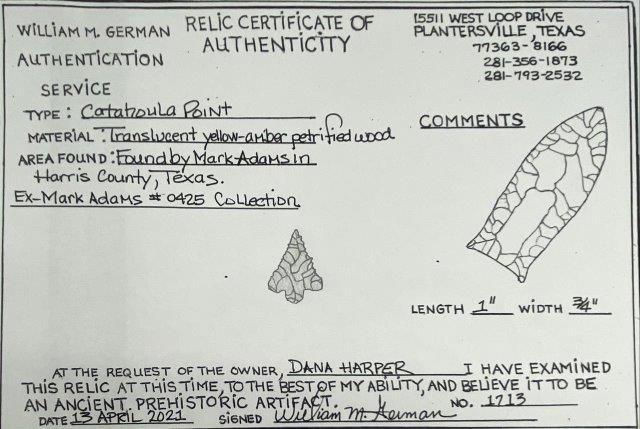 WILLIAM M. GERMAN
AUTHENTICATION
SERVICE
RELIC CERTIFICATE OF
AUTHENTICITY
15511 WEST LOOP DRIVE
PLANTERSVILLE, TEXAS
77363-8166
281-356-1873
281-793-2532
TYPE: Catahoula Point
MATERIAL: Translucent yellow-amber petrified wood
AREA FOUND: Found by Mark Adams in
Harris County, Texas.
Ex-Mark Adams # 0425 Collection
COMMENTS
LENGTH 1" WIDTH 3/4"
AT THE REQUEST OF THE OWNER, DANA HARPER I HAVE EXAMINED
THIS RELIC AT THIS TIME, TO THE BEST OF MY ABILITY, AND BELIEVE IT TO BE
AN ANCIENT PREHISTORIC ARTIFACT. NO. 1713
DATE 13 APRIL 2021 SIGNED William M. German